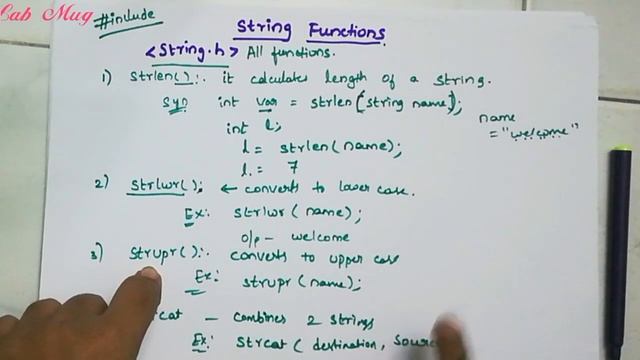 Cab Mug
#include
String Functions.
<String.h> All functions.
1) strlen():. it calculates length of a string.
Syn int var = strlen(string name);
name
= "welcome"
int l;
l = strlen(name);
l. = 7
2) strlwr(); ← converts to lower case.
Ex: strlwr(name);
o/p - welcome
3) strupr():. converts to upper case
Ex: strupr(name);
combines 2 strings
Ex: strcat( destination,